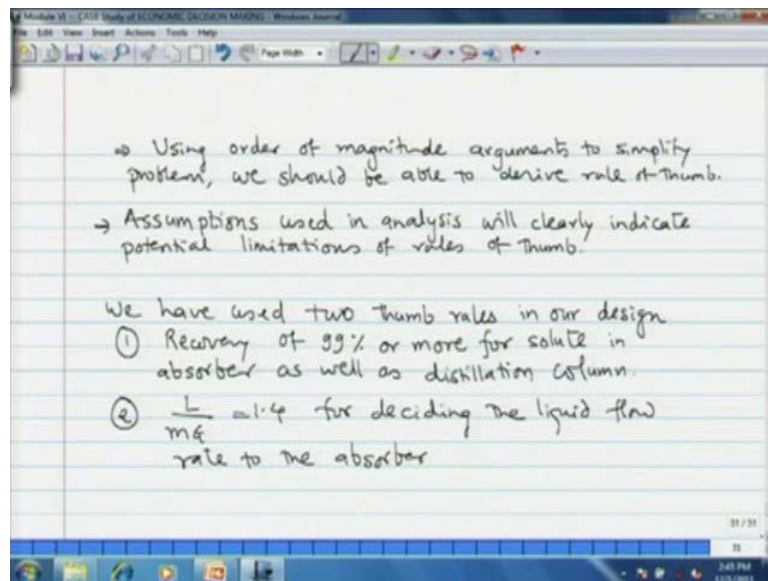 Module VI - CASE Study of ECONOMIC DECISION MAKING - Windows Journal
File Edit View Insert Actions Tools Help
Page Width
⇒ Using order of magnitude arguments to simplify
problem, we should be able to derive rule of thumb.
→ Assumptions used in analysis will clearly indicate
potential limitations of rules of Thumb.
We have used two thumb rules in our design
① Recovery of 99% or more for solute in
absorber as well as distillation column.
② L/mG = 1.4 for deciding the liquid flow
rate to the absorber
31 / 31
31
2:45 PM